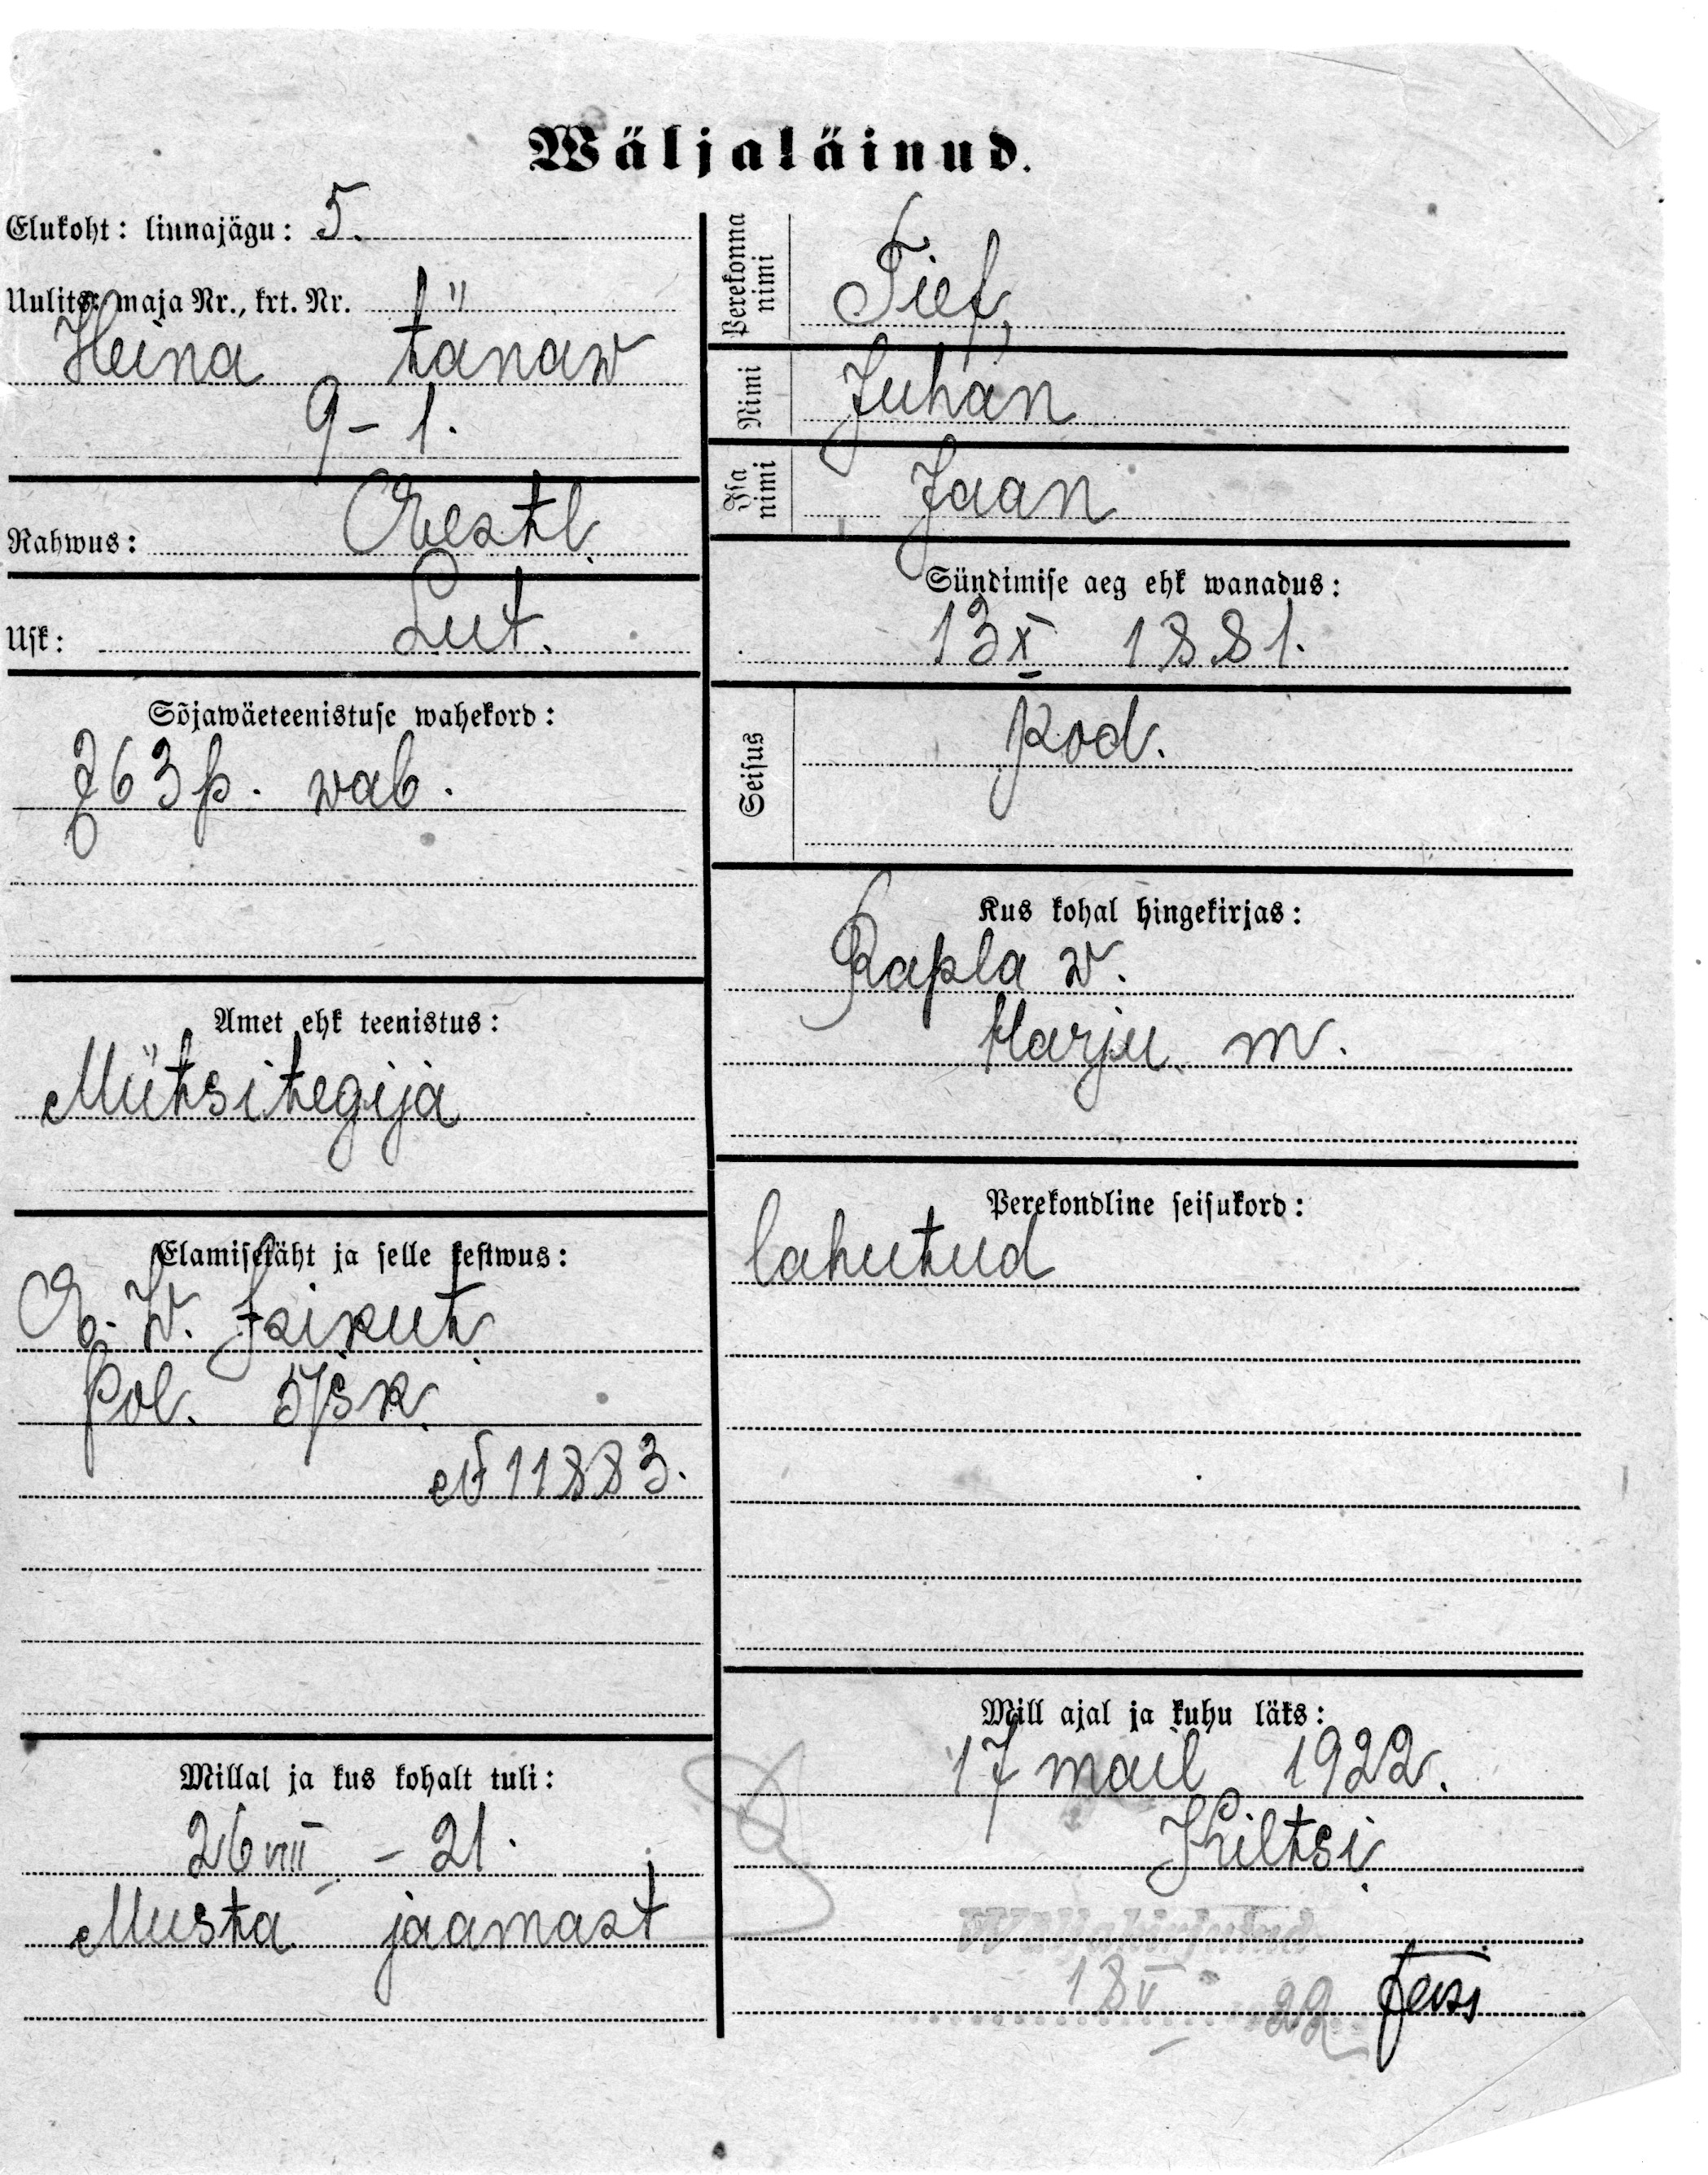 Wäljaläinud.
Elukoht: linnajägu: 5.
Uulits: maja Nr., krt. Nr.
Heina tänaw
9 – 1.
Rahwus: Eestl.
Usk: Lut.
Sõjawäeteenistuse wahekord:
§ 63 p. wab.
Amet ehk teenistus:
Mütsitegija
Elamisetäht ja selle kestwus:
E. W.
Pol. 5 jsk.
№ 11883.
Millal ja kus kohalt tuli:
26 VIII – 21.
Musta jaamast
Perekonna nimi
Tief,
Nimi
Juhan
Isa nimi
Jaan
Sündimise aeg ehk wanadus:
13 X 1881.
Seisus
kod.
Kus kohal hingekirjas:
Rapla w.
Harju m.
Perekondline seisukord:
lahutud
Mill ajal ja kuhu läks:
17 mail 1922.
Kiltsi
Wäljakirjutud
18 V 22